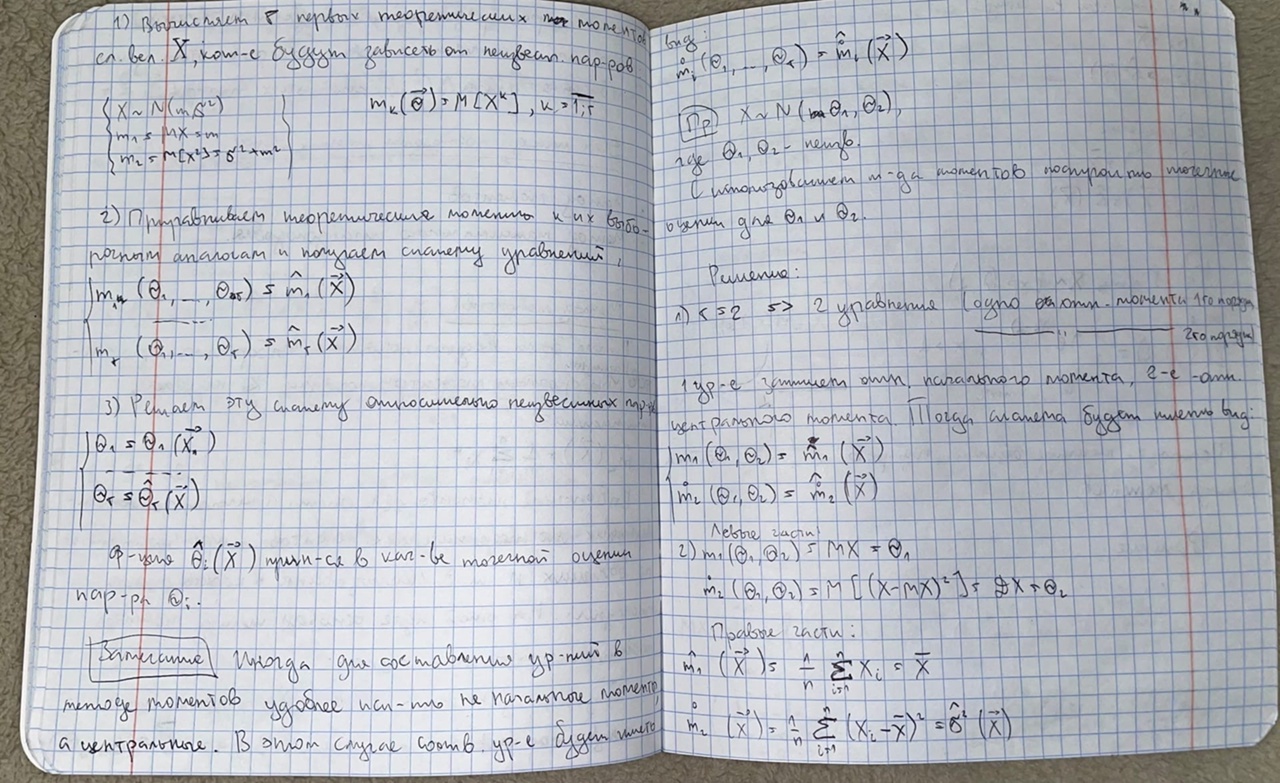 1) Вычисляем r первых теоретических моментов
сл. вел. X, кот-е будут зависеть от неизвест. пар-ров
X ~ N(m, σ²)
m₁ = MX = m
m₂ = M[X²] = σ² + m²
mₖ(θ⃗) = M[Xᵏ], k = 1,r
2) Приравниваем теоретические моменты к их выбо-
рочным аналогам и получаем систему уравнений,
m₁ (θ₁, ..., θr) = m̂₁ (X⃗)
mr (θ₁, ..., θr) = m̂r (X⃗)
3) Решаем эту систему относительно неизвестных пар-в
θ₁ = θ₁ (X⃗)
θr = θ̂r (X⃗)
Ф-ция θ̂ᵢ (X⃗) прин-ся в кач-ве точечной оценки
пар-ра θᵢ.
Замечание Иногда для составления ур-ний в
методе моментов удобнее исп-ть не начальные моменты,
а центральные. В этом случае соотв. ур-е будет иметь
вид:
m̊ᵢ (θ₁, ..., θr) = m̂ᵢ (X⃗)
Пр X ~ N(θ₁, θ₂),
где θ₁, θ₂ - неизв.
С использованием м-да моментов построить точечные
оценки для θ₁ и θ₂.
Решение:
1) r = 2 => 2 уравнения (одно отн. момента 1го порядка
2го порядка)
1 ур-е запишем отн. начального момента, 2-е - отн.
центрального момента. Тогда система будет иметь вид:
m₁ (θ₁, θ₂) = m̂₁ (X⃗)
m̊₂ (θ₁, θ₂) = m̊̂₂ (X⃗)
Левые части:
2) m₁ (θ₁, θ₂) = MX = θ₁
m̊₂ (θ₁, θ₂) = M [(X-MX)²] = DX = θ₂
Правые части:
m̂₁ (X⃗) = 1/n Σ_{i=1}^{n} Xᵢ = X̄
m̊₂ (X⃗) = 1/n Σ_{i=1}^{n} (Xᵢ - X̄)² = σ̂² (X⃗)